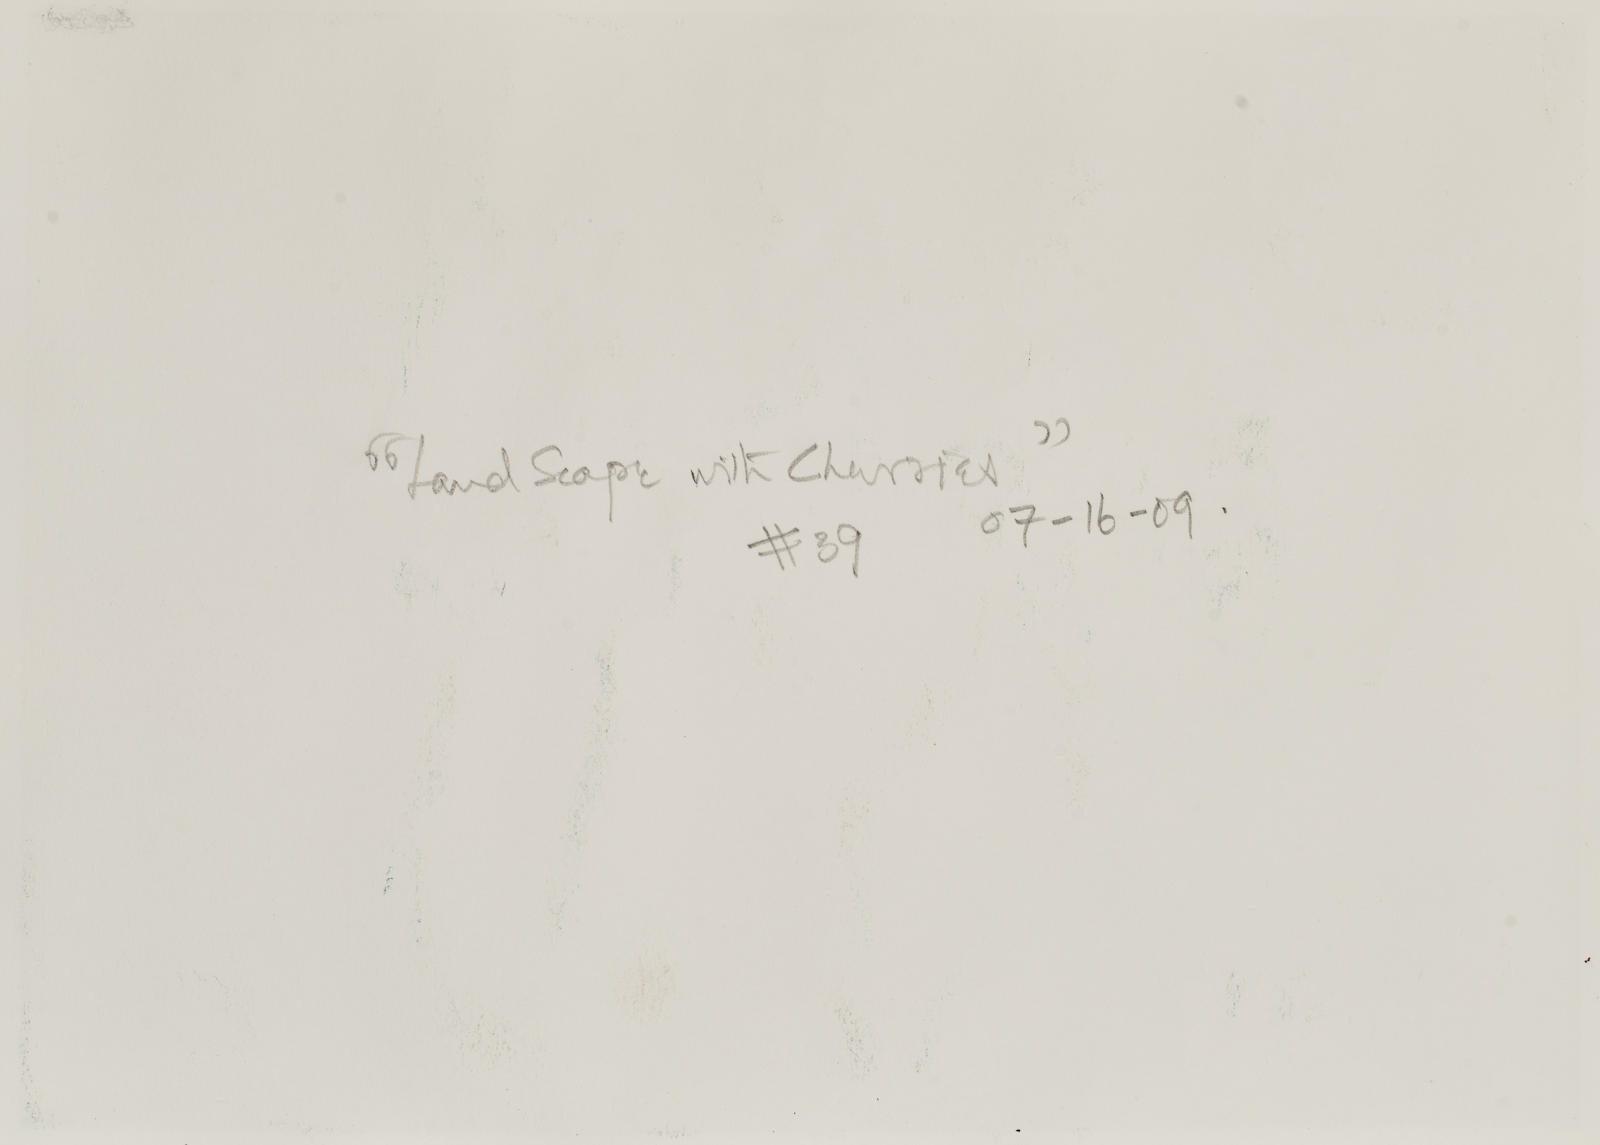 “Land Scape with Cherries”
07-16-09.
#39